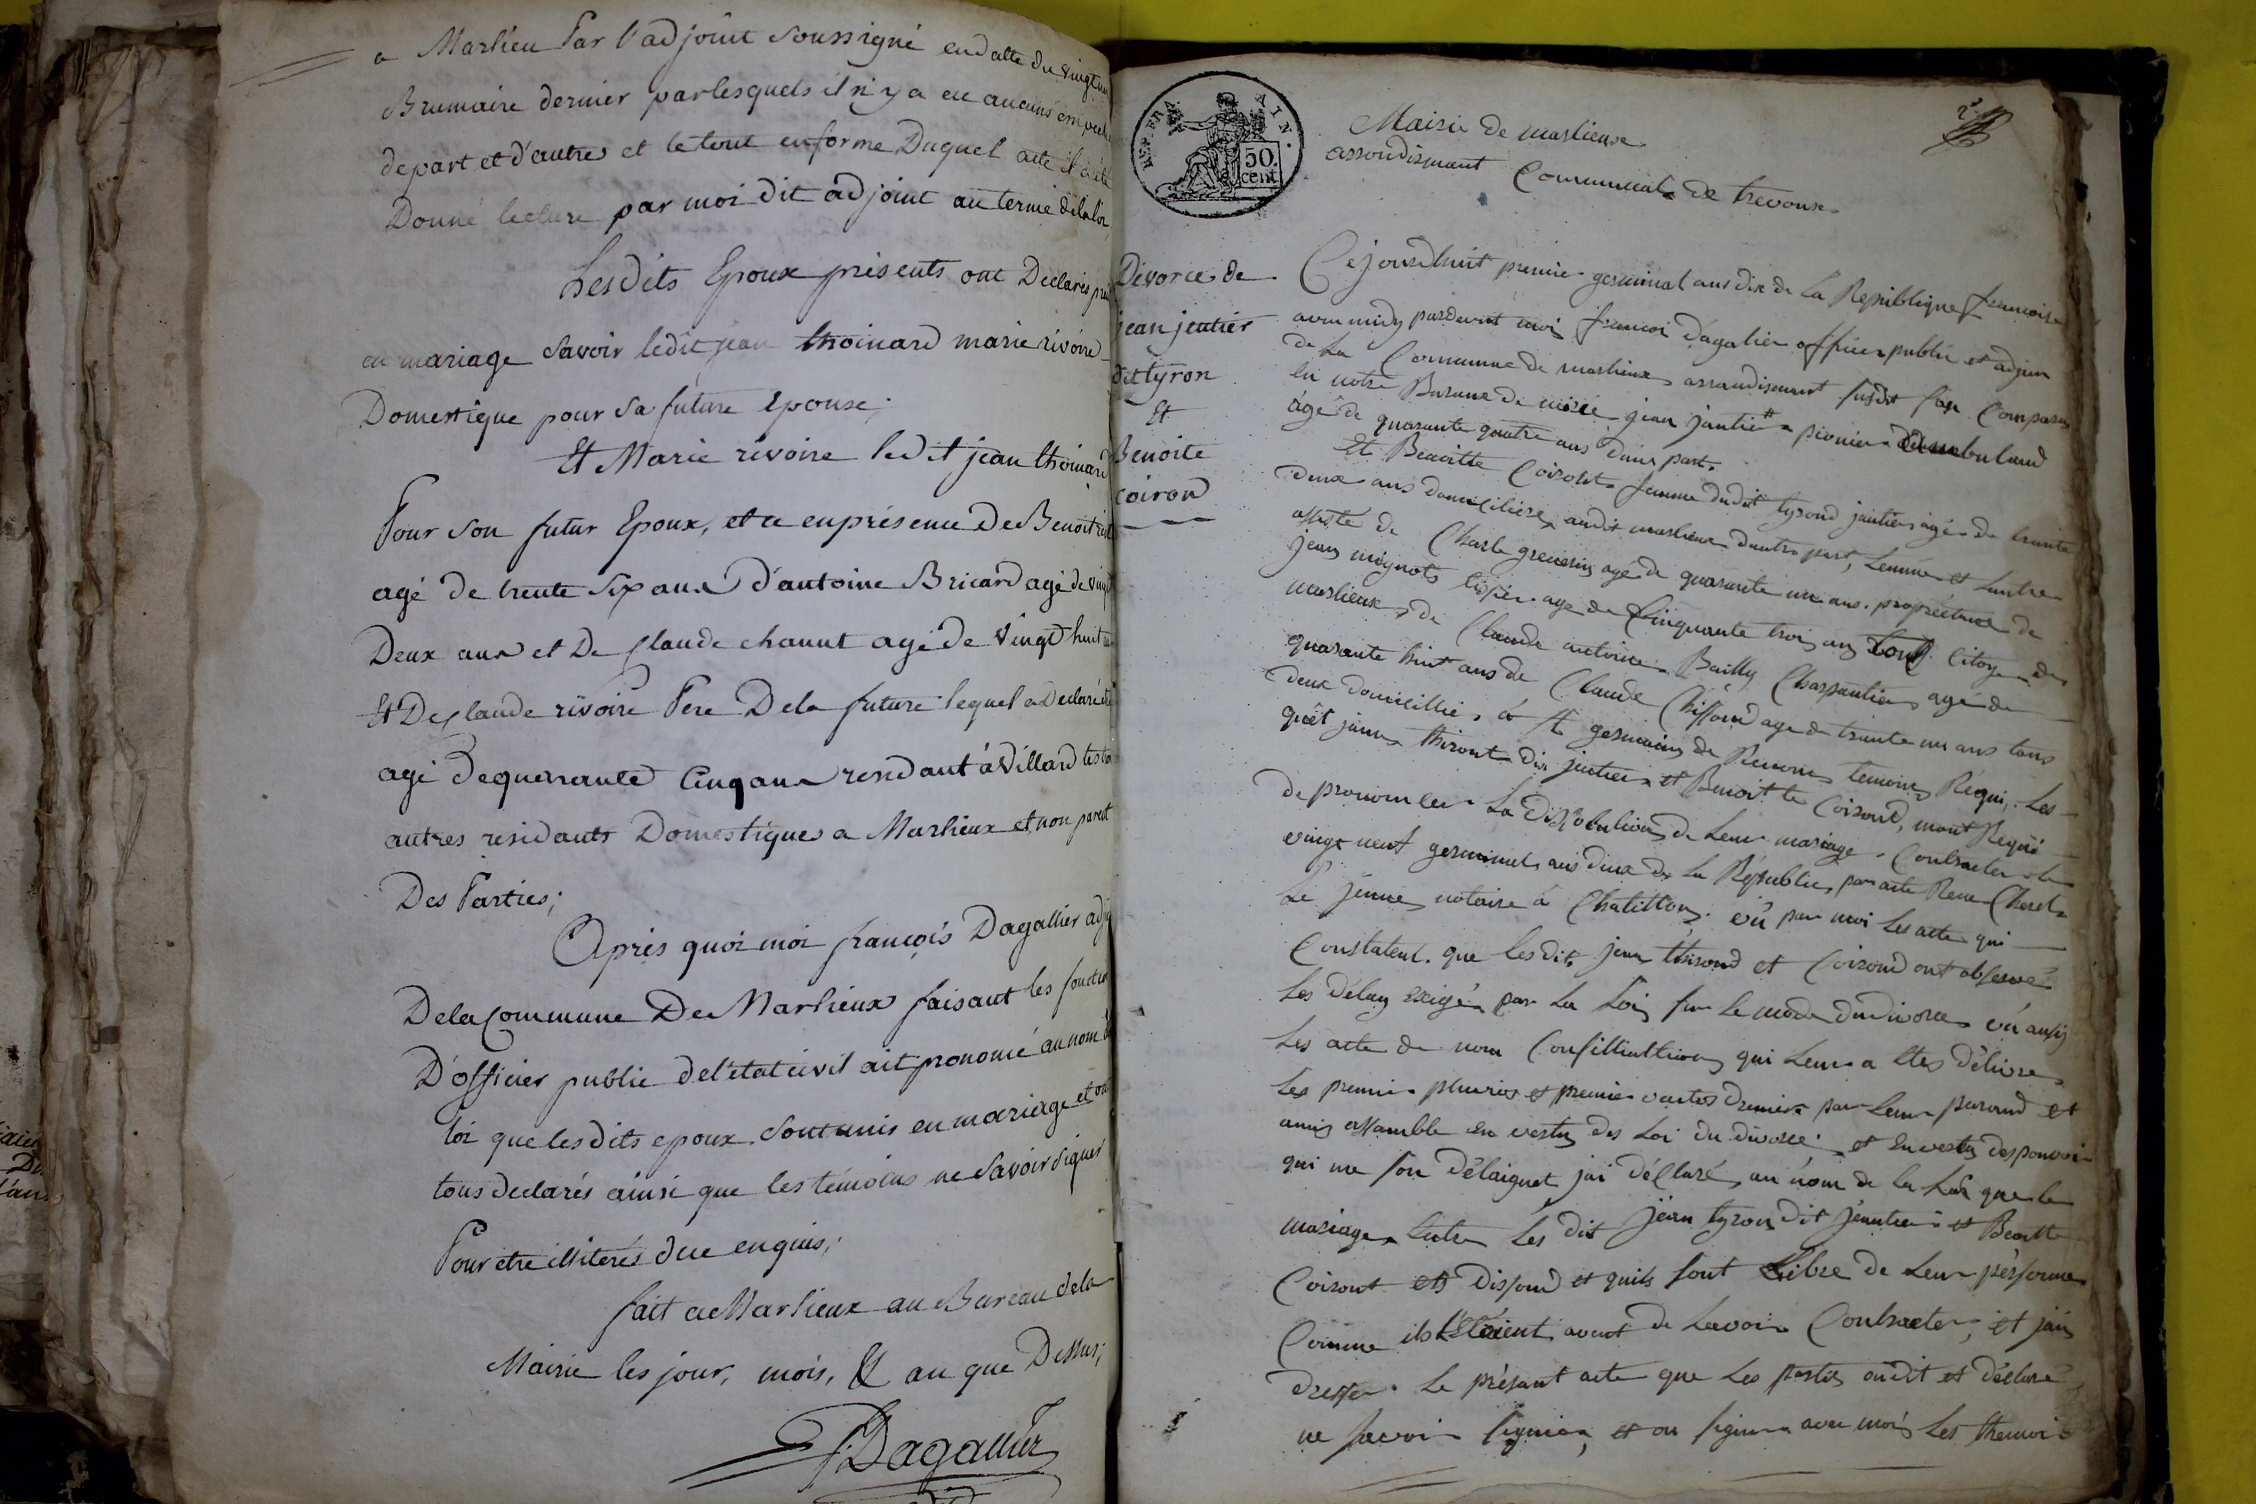 a Marlieu Par l'adjoint soussigné en datte du vingt un
Brumaire dernier par lesquels il n'y a eu aucuns empech
de part et d'autres et le tout en forme Duquel acte il a été
Donné lecture par moi dit adjoint au terme de la loi
Lesdits Epoux présents ont Déclarés
en mariage savoir ledit jean thoinard marie rivoire
Domestique pour sa future Epouse;
Et Marie rivoire ledit jean thoinard
Pour son futur Epoux, et ce en présence De Benoit
agé de trente six ans D'antoine Bricard agé de vingt
Deux ans et De Claude chanut agé de vingt huit
Et De Claude rivoire Pere De la future lequel a Declaré
agé De quarante Cinq ans residant à Villard les
autres residants Domestiques a Marlieux et non parent
Des Parties;
Après quoi moi françois Dagallier adj
De la Commune De Marlieux faisant les fonction
D'officier public de l'état civil ait prononcé au nom de
loi que lesdits epoux sont unis en mariage et ont
tous declarés ainsi que les témoins ne savoir signer
Pour etre illiterés de ce enquis;
fait a Marlieux au Bureau de la
Mairie les jour, mois, & an que Dessus;
F. Dagallier
REP. FRA. AIN.
50. cent.
Mairie de marlieux
arrondisment Comunnical de trevoux
Divorce de
jean jentier
dit tyron
Et
Benoite
coiron
Cejourdhuit premier germinal ans dix de La Republique francoise
avan midy pardevant moi francoi dagalier officier public et adjoin
de La Commune de marlieux arrandisment susdit son Comparu
en notre Bureau de jean jantier pionier
âgé de quarante quatre ans d'une part.
Et Benoitte Coiront femme dudit tyrond jantier âgée de trante
deux ans domiciliere audit marlieux dautre part, Lunne et Lautre
assisté de Charle agé de quarante un ans proprietaire de
jean mignot agé de Cinquante troi ans tous Citoyen de
marlieux de Claude antoine Bailly Charpantier agé de
quarante huit ans de Claude agé de trante un ans tous
deux domicillié à St germain de Renom temoins Réqui. Les
quêt jean thiront dit jentier et Benoitte Coirond, mont Requi
de prononcer La dissolution de Leur mariage Contracter le
vingt neuf germinal ans deux de la République par acte
Le jeunne notaire à Chatillon; vû par moi Les acte qui
Constatent que lesdit jean thirond et Coirond ont observé
Les délay exigé par la Loi sur Le mode du divorce vû aussi
Les acte de nom Consilliation qui Leur a étés délivre
Les premier pluvios et premier vantos dernier par Leur parand et
amis assamble en vertu des Loi du divorce; et en vertu des pouvoir
qui me son délaiguet jai déclaré au nom de la Loi que le
mariage Entre Les dit jean tyron dit jeantier et Benoitte
Coiront est dissoud et quils sont Libre de Leur pérsonne
Comme ils L'étoient avant de Lavoir Contracter; et jais
dresser Le présant acte que Les partis on dit et déclaré
ne savoir signier, et on signier avec moi Les themoi